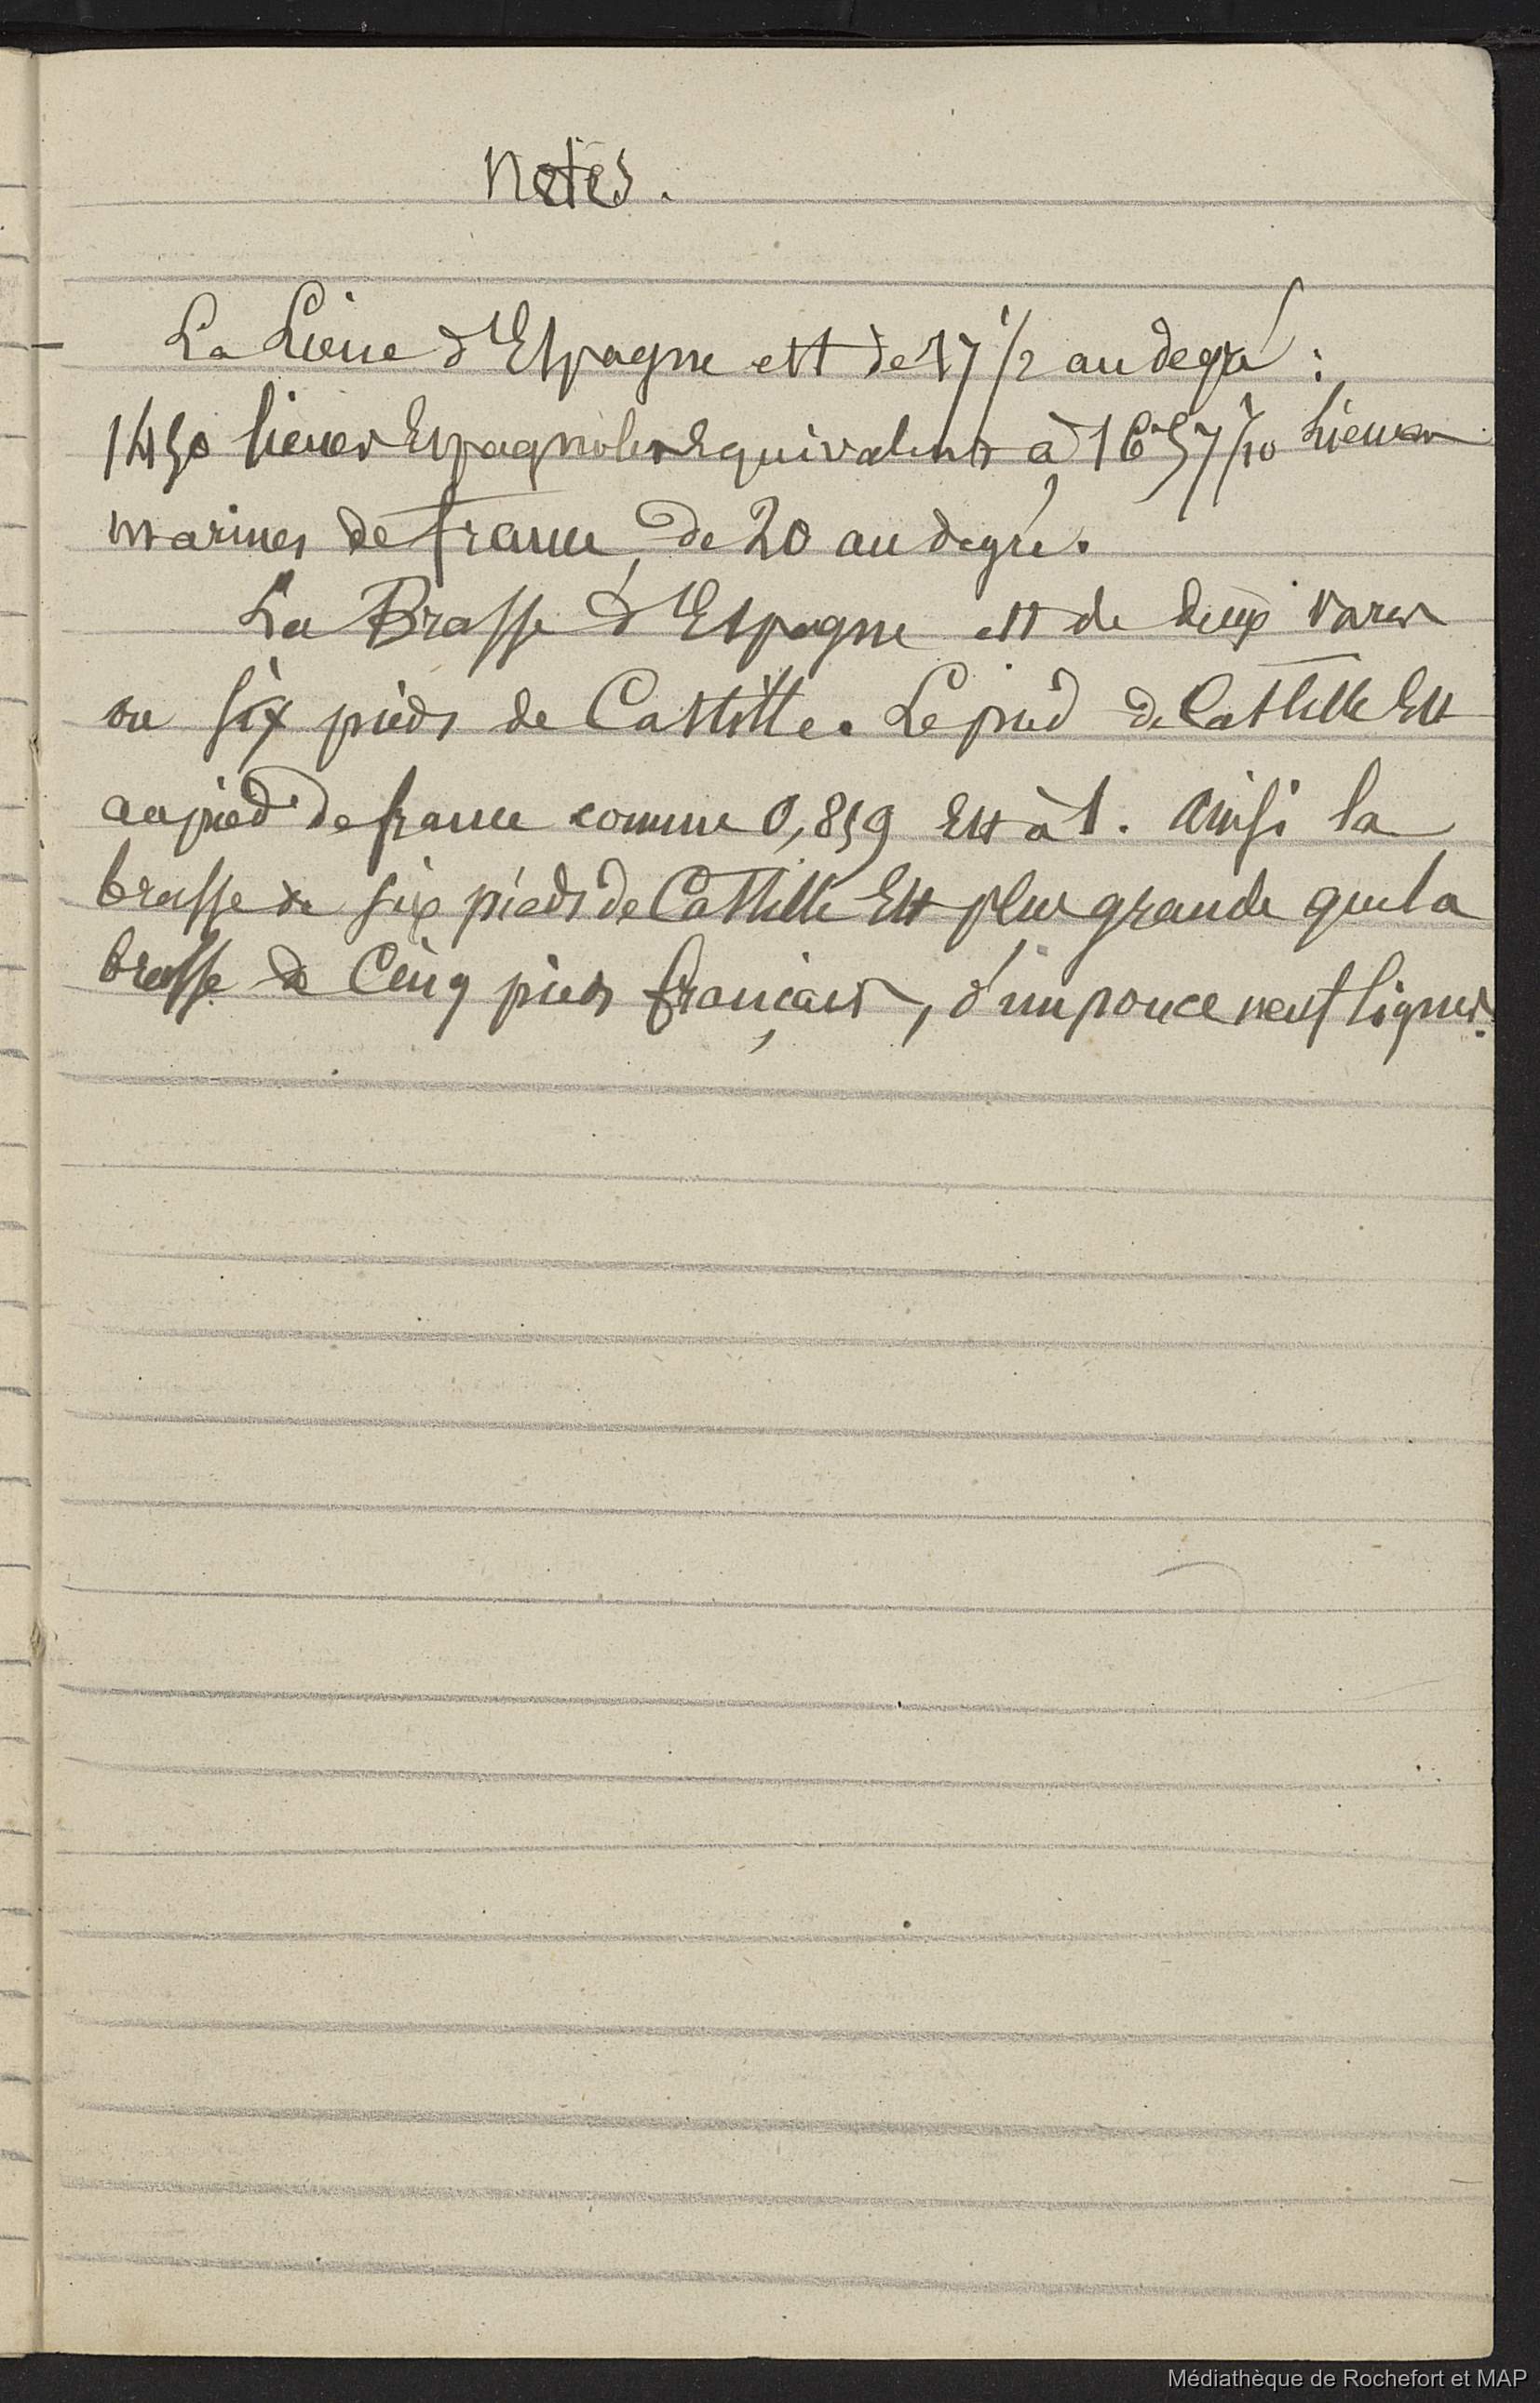 Notes.
La Lieue d'Espagne est de 17 1/2 au degré :
1450 lieues Espagnoles Equivalent à 1657/10 Lieues
marines de france, de 20 au degré.
La Brasse d'Espagne est de deux vares
ou six pieds de Castille. Le pied de Castille Est
au pied de france comme 0,859 Est à 1. Ainsi la
brasse de six pieds de Castille Est plus grande que la
brasse de Cinq pieds français, d'un pouce neuf lignes.
Médiathèque de Rochefort et MAP